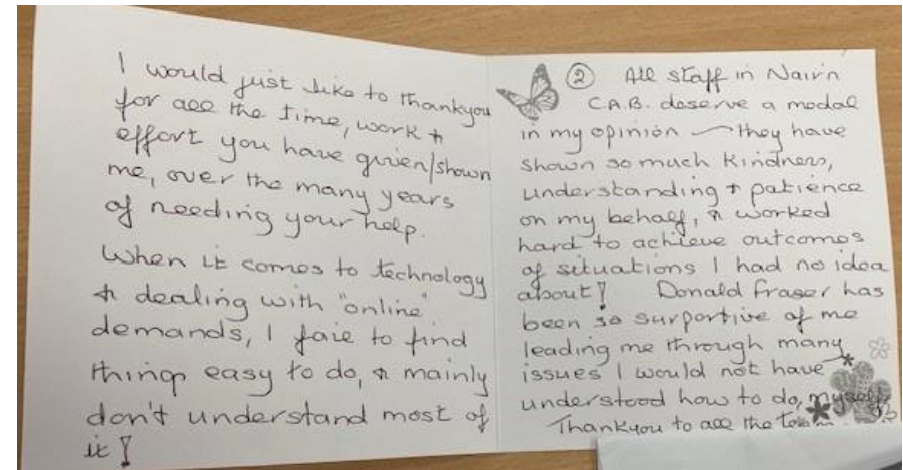 I would just like to thankyou
for all the time, work +
effort you have given/shown
me, over the many years
of needing your help.
When it comes to technology
+ dealing with "online"
demands, I faie to find
things easy to do, + mainly
don't understand most of
it!
② All staff in Nairn
C.A.B. deserve a medal
in my opinion — they have
shown so much kindness,
understanding + patience
on my behalf, + worked
hard to achieve outcomes
of situations I had no idea
about! Donald Fraser has
been so surportive of me
leading me through many
issues I would not have
understood how to do, myself.
Thankyou to all the team